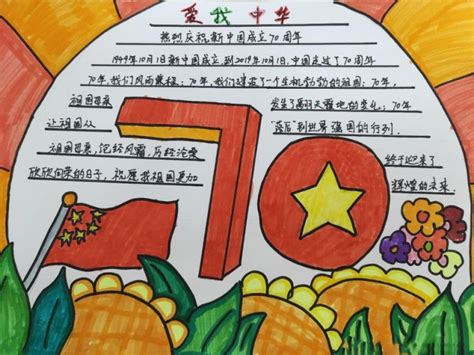 爱我中华
热烈庆祝新中国成立70周年
1949年10月1日新中国成立到2019年10月1日,中国走过了70周年
70年,我们风雨兼程;70年,我们建设了一个生机勃勃的祖国;70年,
祖国母亲 发生了翻天覆地的变化;70年
让祖国从 "落后"到世界强国的行列.
祖国母亲,饱经风霜,历经沧桑 终于迎来了
欣欣向荣的日子,祝愿我祖国更加 辉煌的未来.
70